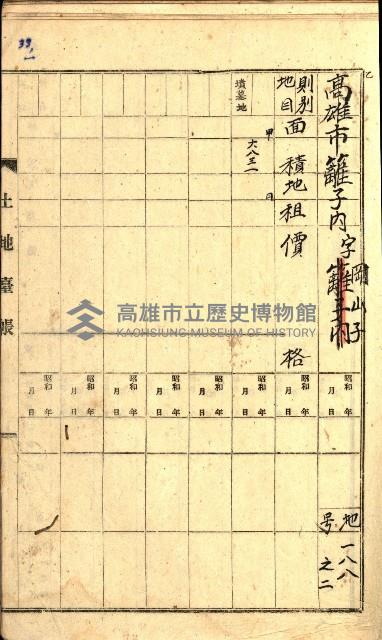 乙
高雄市籬子内字籬子内
岡山子
地一八八
号之二
則別
地目
面積
地租
價格
墳墓地
甲
大八三一
昭和 年 月 日
昭和 年 月 日
昭和 年 月 日
昭和 年 月 日
昭和 年 月 日
昭和 年 月 日
昭和 年 月 日
昭和 年 月 日
土地臺帳
高雄市立歷史博物館
KAOHSIUNG MUSEUM OF HISTORY